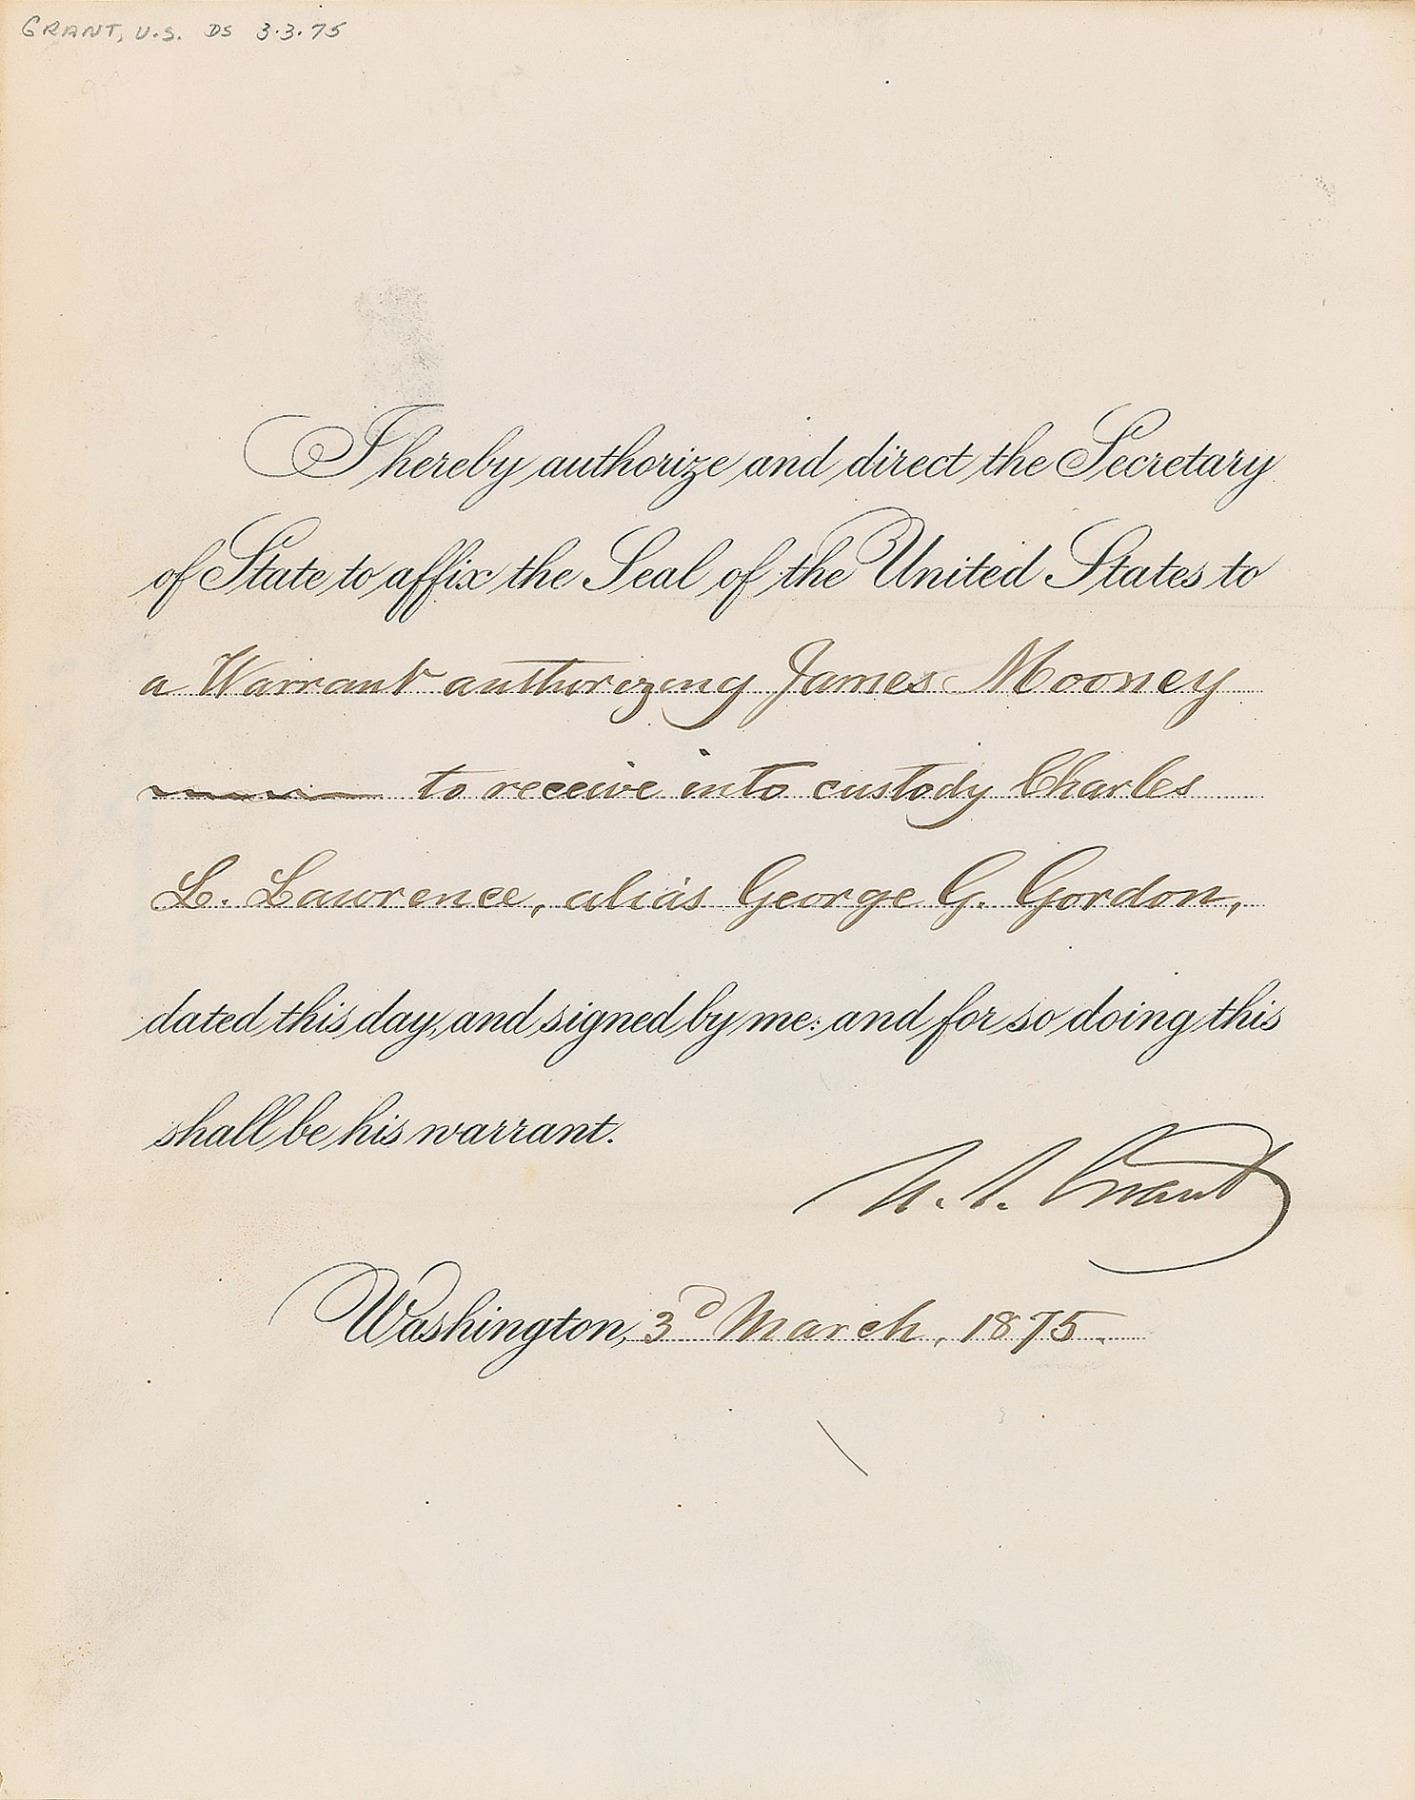 GRANT, U.S. DS 3.3.75
I hereby authorize and direct the Secretary
of State to affix the Seal of the United States to
a Warrant authorizing James Mooney
to receive into custody Charles
L. Lawrence, alias George G. Gordon,
dated this day, and signed by me: and for so doing this
shall be his warrant.
U. S. Grant
Washington, 3d March, 1875.